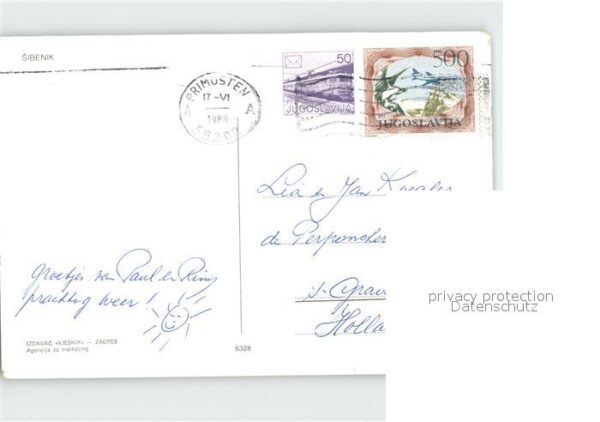 ŠIBENIK
50
JUGOSLAVIJA
500
JUGOSLAVIJA
PRIMOŠTEN
A A
17-VI
1988
59202
Lia en Jan
de
s-Grav
Holla
Groetjes van Paul en Riny
prachtig weer!
privacy protection
Datenschutz
IZDAVAČ »VJESNIK« — ZAGREB
Agencija za marketing
6328